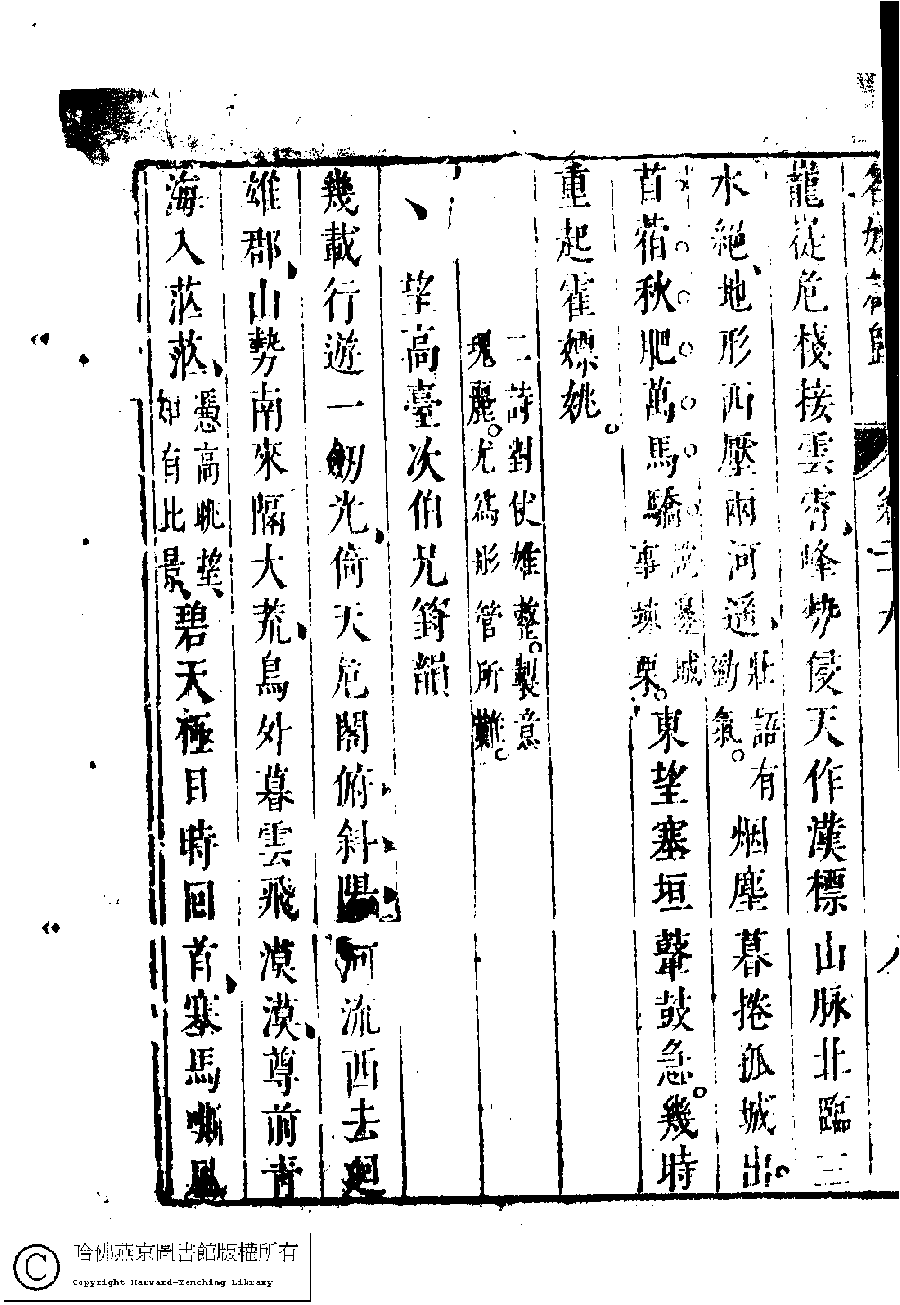 名媛詩歸 卷三十八 八
龍從危棧接雲霄峰勢侵天作漢標山脉北臨三
水絕地形西壓兩河遥壯語有勁氣。烟塵暮捲孤城出
苜蓿秋肥萬馬驕邊城事竦栗。東望塞垣鼙鼓急幾時
重起霍嫖姚
二詩對仗雄整。製意
瑰麗。尤為彤管所難。
望高臺次伯兄韻
幾載行遊一劒光倚天危閣俯斜陽河流西去廻
雄郡山勢南來隔大荒鳥外暮雲飛漠漠尊前青
海入茫茫憑高眺望如有此景碧天極目時回首塞馬嘶風
哈佛燕京圖書館版權所有
Copyright Harvard-Yenching Library